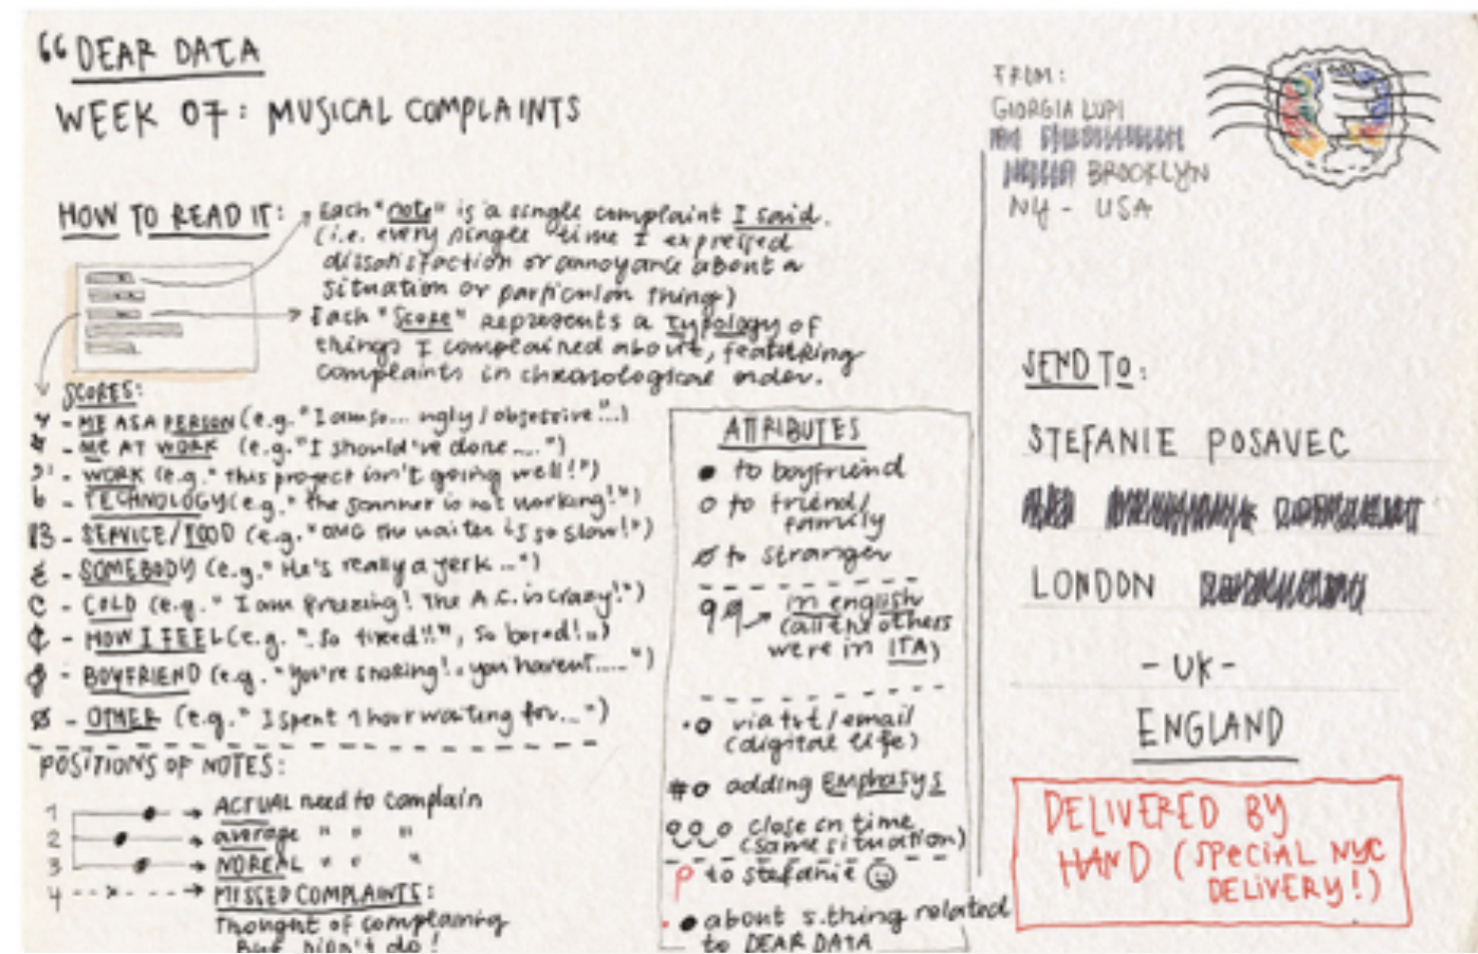 “DEAR DATA
WEEK 07: MUSICAL COMPLAINTS
HOW TO READ IT:
Each "note" is a single complaint I said.
(i.e. every single time I expressed
dissatisfaction or annoyance about a
situation or particular thing)
Each "Score" represents a typology of
things I complained about, featuring
complaints in chronological order.
SCORES:
- ME AS A PERSON (e.g. "I am so... ugly / obsessive"...)
- ME AT WORK (e.g. "I should've done ....")
- WORK (e.g. "this project isn't going well!")
- TECHNOLOGY (e.g. "the scanner is not working!")
- SERVICE/FOOD (e.g. "OMG the waiter is so slow!")
- SOMEBODY (e.g. "He's really a jerk ...")
- COLD (e.g. "I am freezing! The A.C. is crazy!")
- HOW I FEEL (e.g. "So tired!!", So bored!..)
- BOYFRIEND (e.g. "You're snoring!, you havent.....")
- OTHER (e.g. "I spent 1 hour waiting for...")
POSITIONS OF NOTES:
1 → ACTUAL need to complain
2 → average " " "
3 → NO REAL " " "
4 → MISSED COMPLAINTS:
Thought of complaining
But Didn't do!
ATTRIBUTES
to boyfriend
to friend/
family
to stranger
in english
(all the others
were in ITA)
via txt / email
(digital life)
# adding EMPhasys
close in time
(same situation)
to stefanie
about s.thing related
to DEAR DATA
FROM:
GIORGIA LUPI
BROOKLYN
NY - USA
SEND TO:
STEFANIE POSAVEC
LONDON
- UK -
ENGLAND
DELIVERED BY
HAND (SPECIAL NYC
DELIVERY!)